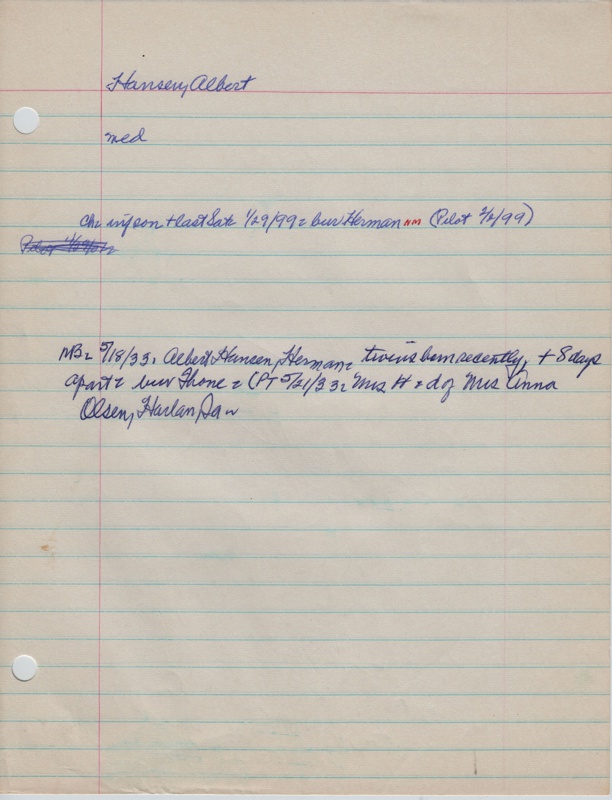 Hansen, Albert
med
Ch= inf son + last Sat= 1/29/99= bur Herman NM (Pilot 2/2/99)
Pilot
NB= 5/18/33= Albert Hansen, Herman= twins born recently, + 8 days
apart= bur Thone= (PT 5/21/33= Mrs H= d of Mrs Anna
Olsen, Harlan, Ia=